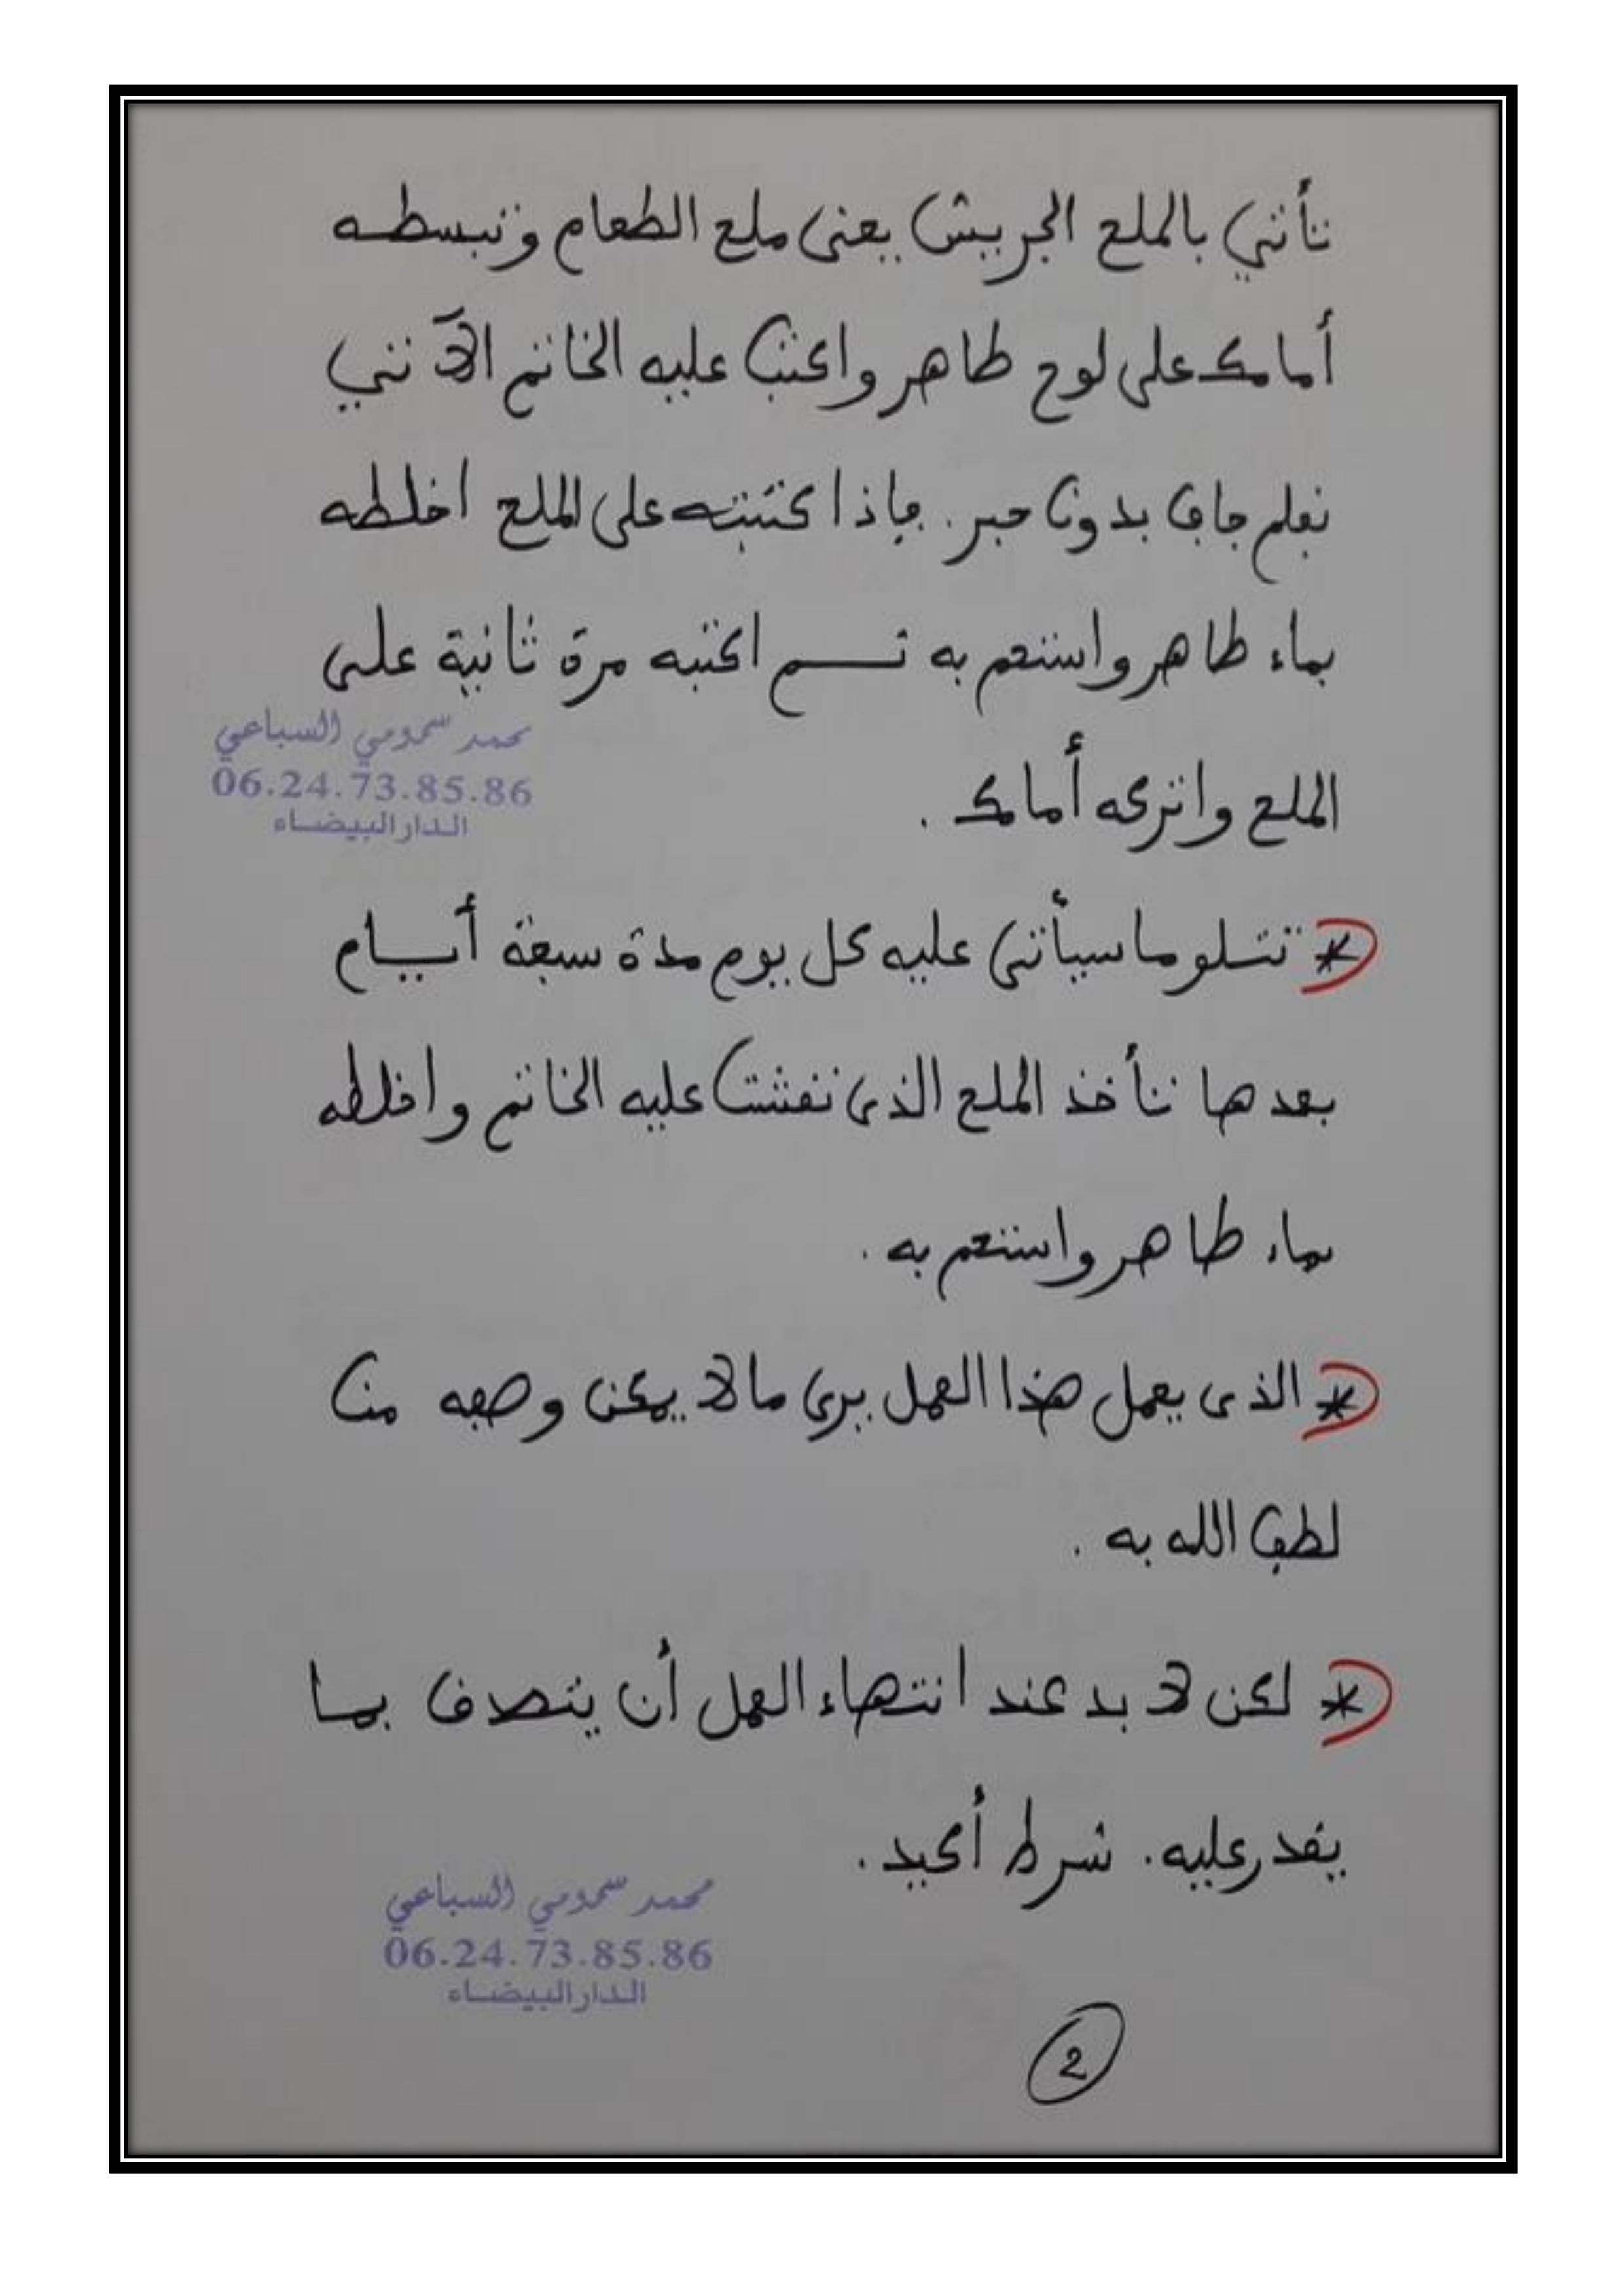 تأتي بالملح الجريش يعنى ملح الطعام وتبسطه
أمامك على لوح طاهر واكتب عليه الخاتم الآتي
بقلم جاف بدون حبر. فإذا كتبته على الملح اخلطه
بماء طاهر واستحم به ثـــم اكتبه مرة ثانية على
محمد سمومي السباعي
06.24.73.85.86
الدار البيضاء
الملح واتركه أمامك .
* تتلو ما سيأتى عليه كل يوم مدة سبعة أيـــام
بعدها تأخذ الملح الذى نقشت عليه الخاتم واخلطه
بماء طاهر واستحم به .
* الذى يعمل هذا العمل يرى ما لا يمكن وصفه من
لطف الله به .
* لكن لا بد عند انتهاء العمل أن يتصدق بمـا
يقدر عليه. شرط أكيد .
محمد سمومي السباعي
06.24.73.85.86
الدار البيضاء
2